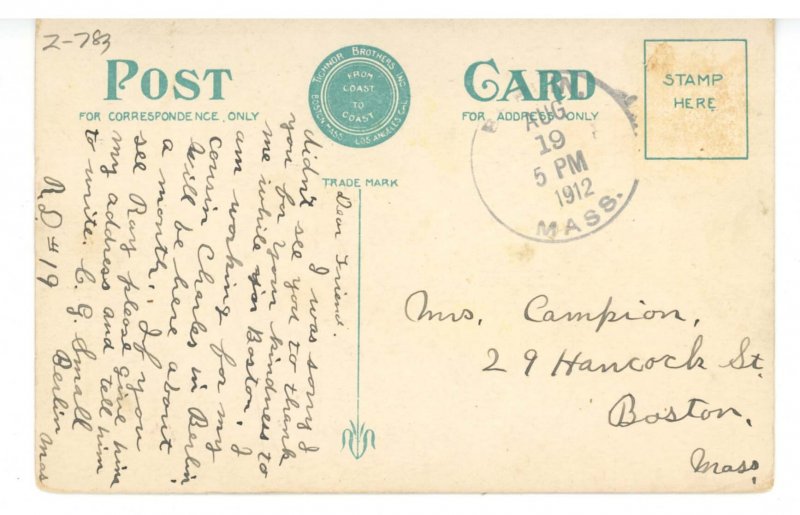 2-783
POST CARD
FOR CORRESPONDENCE ONLY
FOR ADDRESS ONLY
TICHNOR BROTHERS INC.
BOSTON, MASS. LOS ANGELES CAL.
FROM
COAST
TO
COAST
TRADE MARK
STAMP
HERE
AUG
19
5 PM
1912
MASS.
Dear Friend.
I was sorry I
didn't see you to thank
you for your kindness to
me while in Boston. I
am working for my
cousin Charles in Berlin
Will be here about
a month. If you
see Ray please give him
my address and tell him
to write. C. G. Small
Berlin
R.D #19 Mas
Mrs. Campion,
29 Hancock St.
Boston,
Mass.